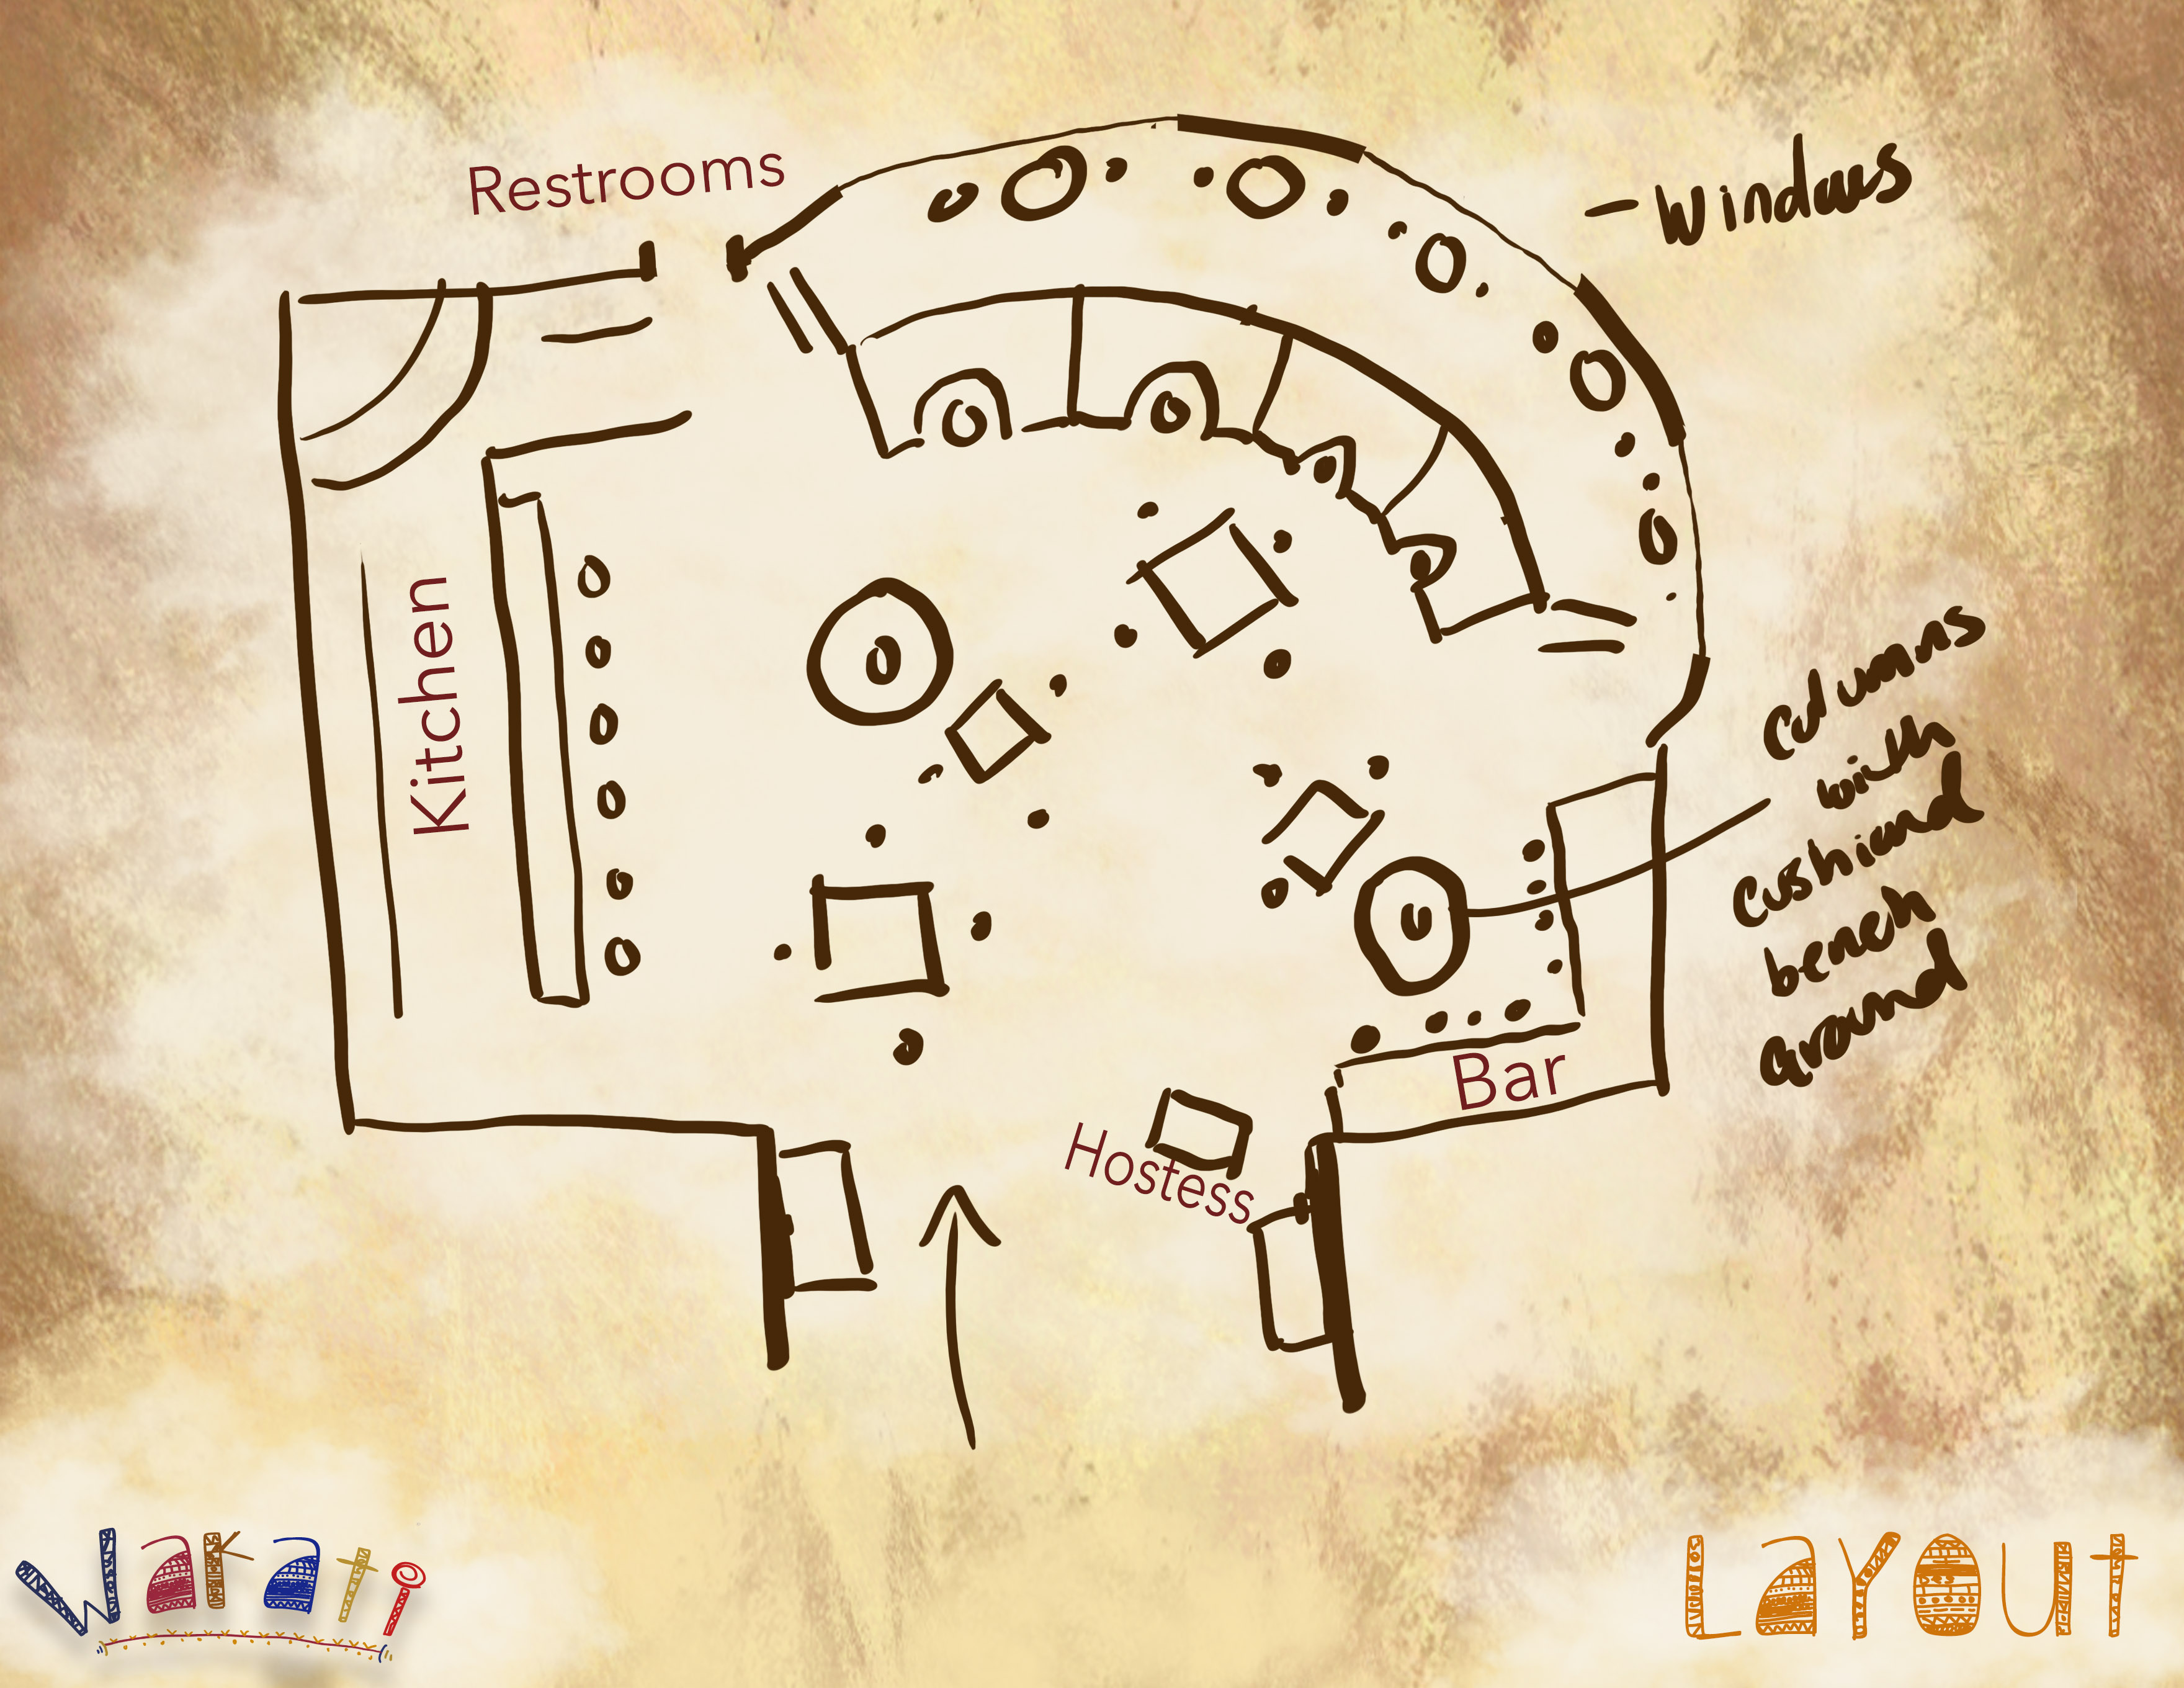 Restrooms
- Windows
Kitchen
Columns
with
cushiond
bench
around
Bar
Hostess
Wakati
Layout